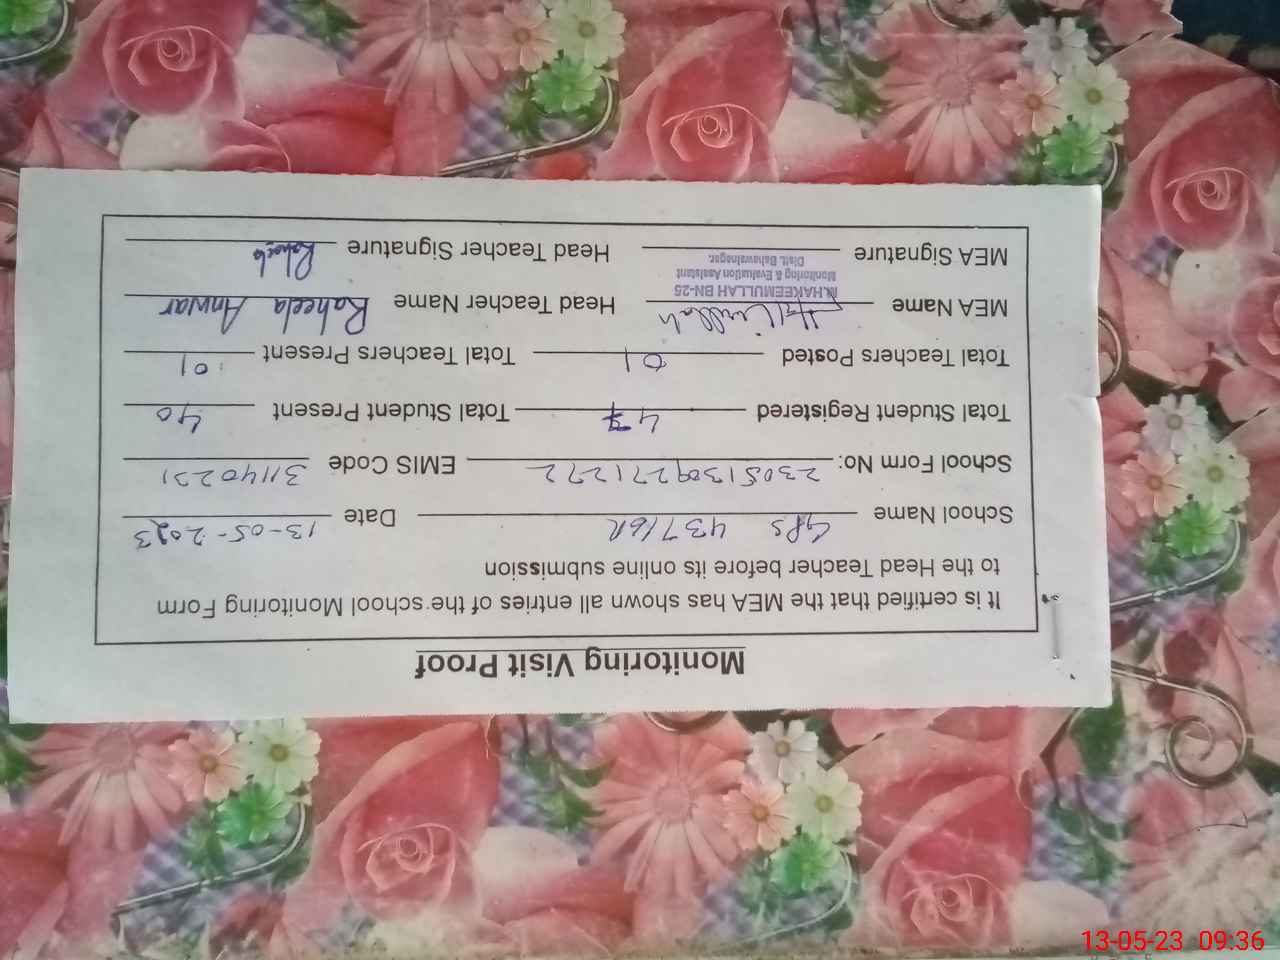 Monitoring Visit Proof
It is certified that the MEA has shown all entries of the school Monitoring Form
to the Head Teacher before its online submission
School Name GPS 437/6R Date 13-05-2023
School Form No: 23051309271272 EMIS Code 31140231
Total Student Registered 47 Total Student Present 40
Total Teachers Posted 01 Total Teachers Present 01
MEA Name Head Teacher Name Raheela Anwar
M.HAKEEMULLAH BN-25
Monitoring & Evaluation Assistant
Distt. Bahawalnagar.
MEA Signature Head Teacher Signature Raheela
13-05-23 09:36